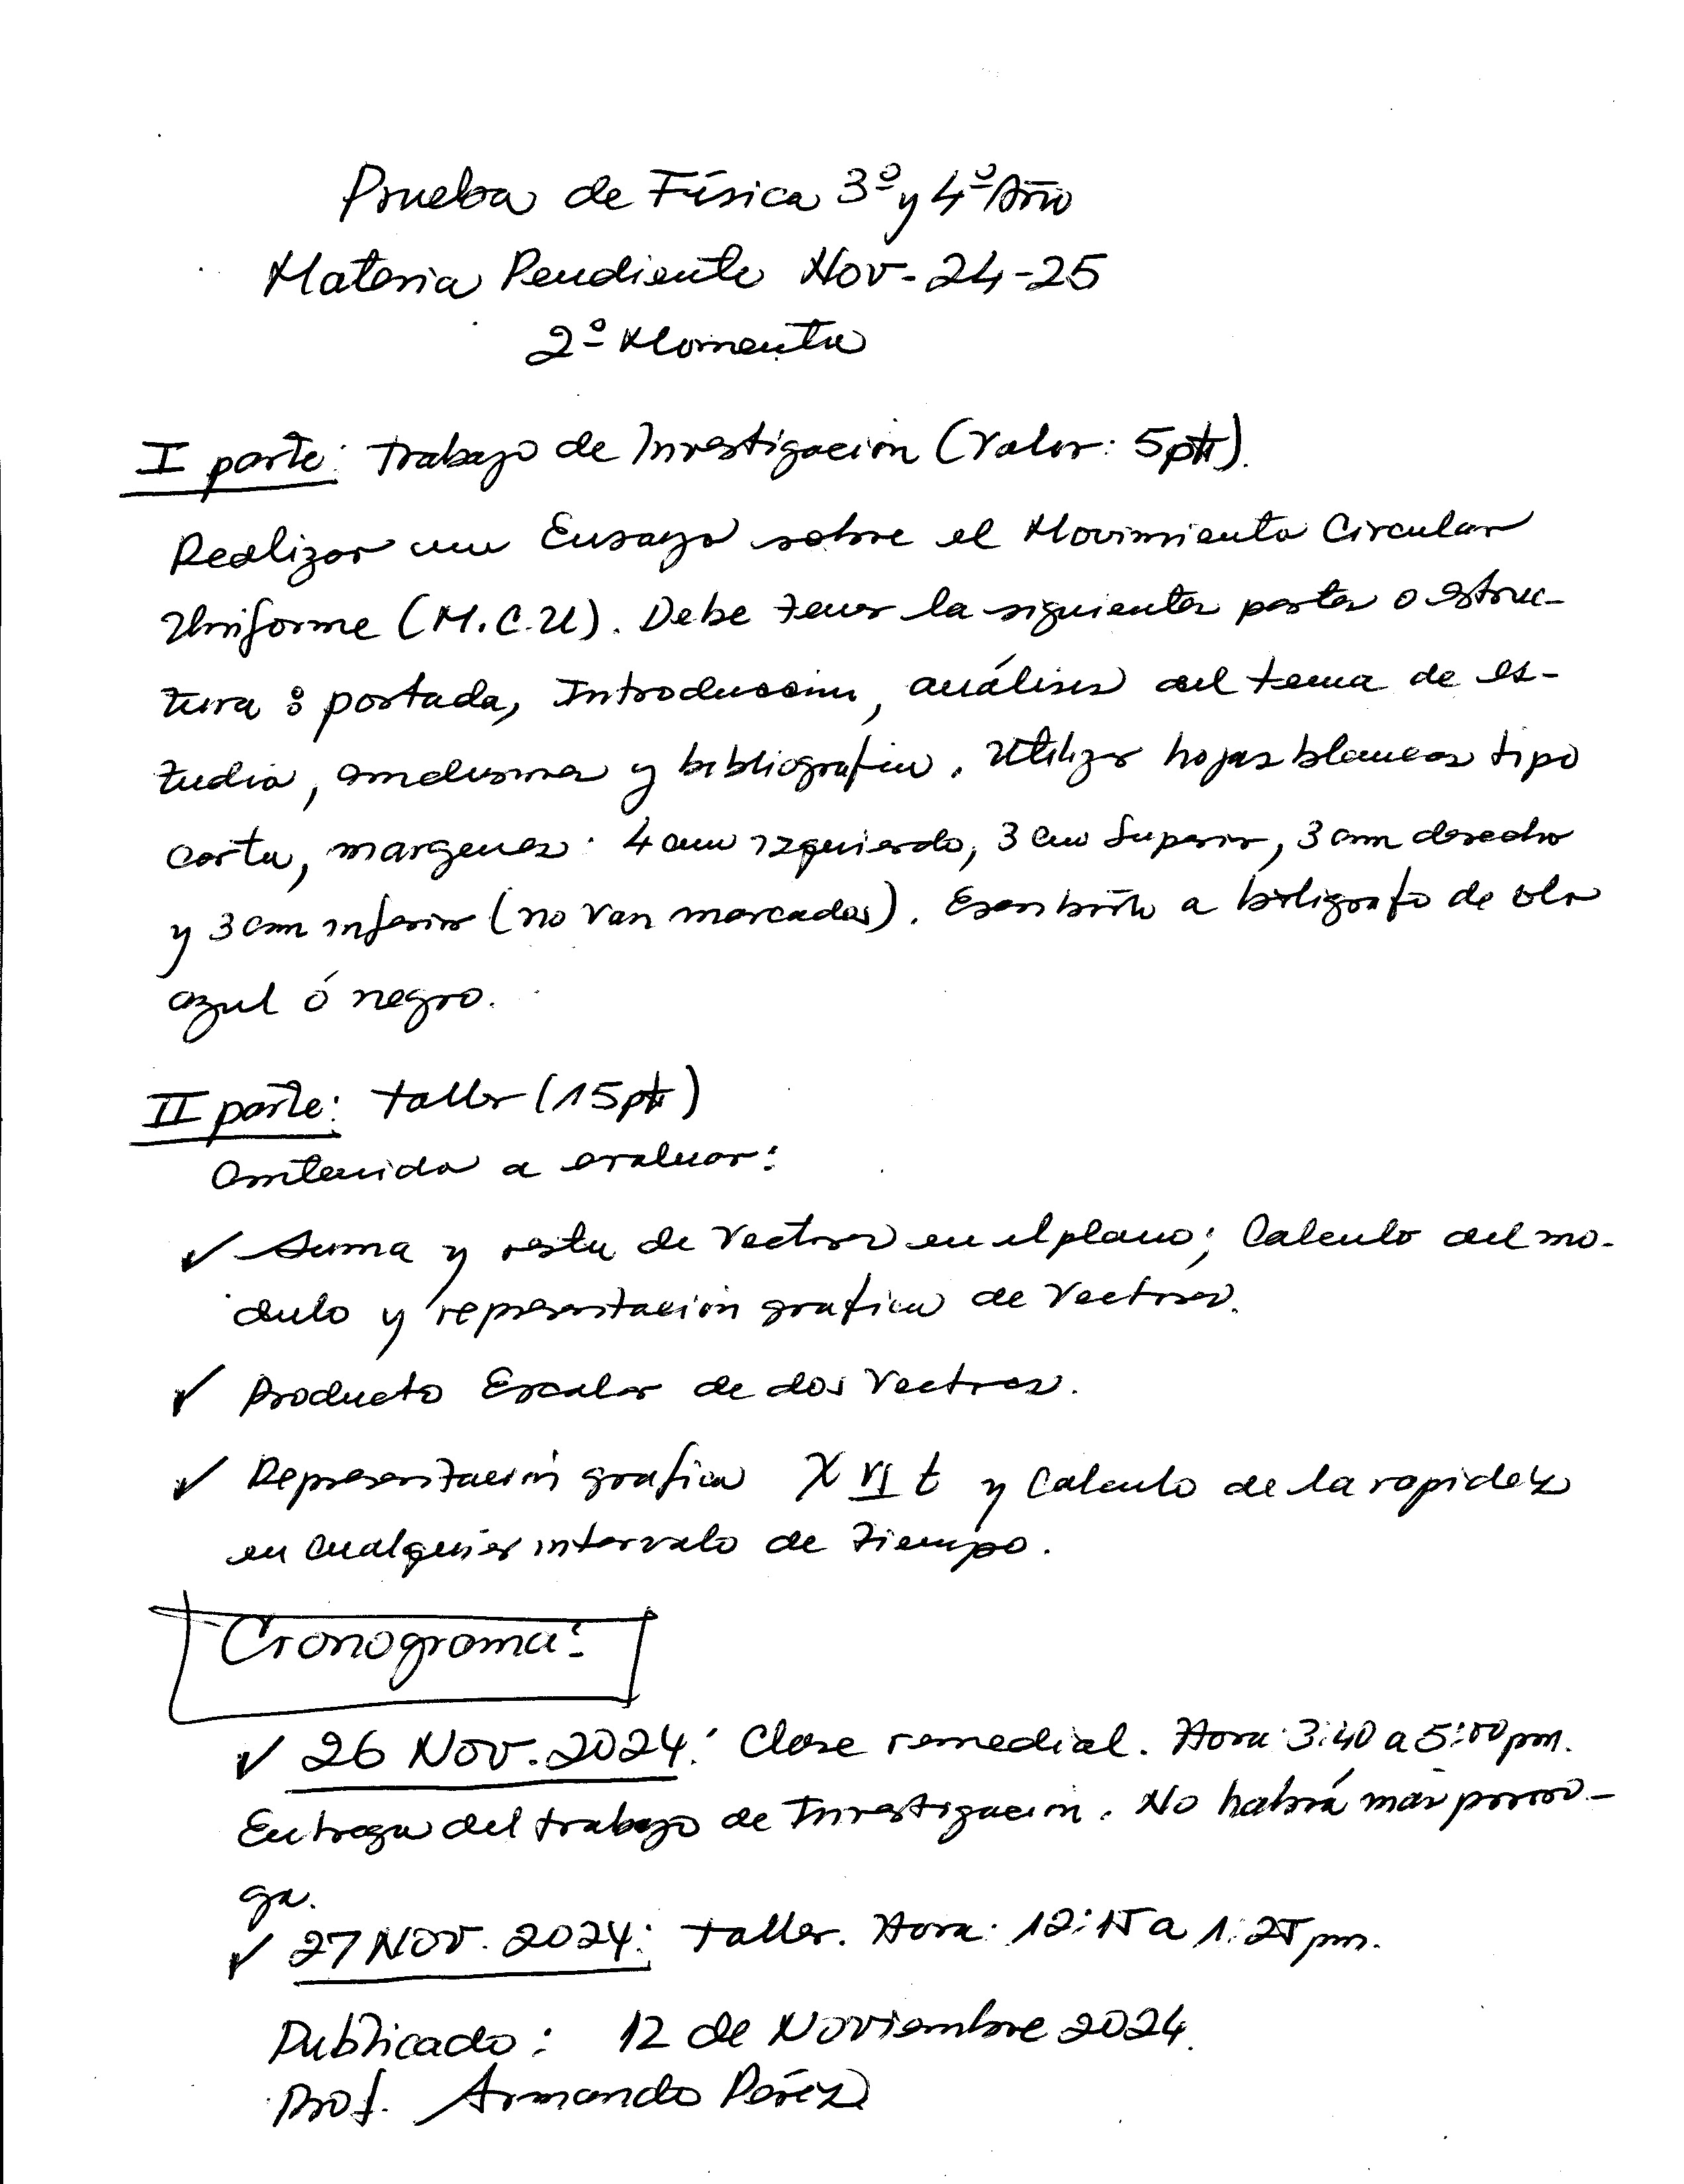 Prueba de Física 3º y 4º Año
Materia Pendiente Nov-24-25
2º Momento
I parte: Trabajo de Investigación (Valor: 5pts).
Realizar un Ensayo sobre el Movimiento Circular
Uniforme (M.C.U). Debe tener la siguientes partes o estruc-
tura: portada, Introducción, análisis del tema de es-
tudio, conclusiones y bibliografía. Utilizar hojas blancas tipo
carta, margenes: 4 cm izquierdo, 3 cm Superior, 3 cm derecho
y 3 cm inferior (no van marcados). Escribirlo a bolígrafo de color
azul ó negro.
II parte: taller (15pts)
Contenido a evaluar:
✓ Suma y resta de Vectores en el plano; Calculo del mo-
dulo y representación grafica de Vectores.
✓ Producto Escalar de dos Vectores.
✓ Representación grafica X vs t y Calculo de la rapidez
en cualquier intervalo de tiempo.
Cronograma:
✓ 26 Nov. 2024: Clase remedial. Hora: 3:40 a 5:00 pm.
Entrega del trabajo de Investigación. No habrá más prorro-
ga.
✓ 27 Nov. 2024: taller. Hora: 12:15 a 1:25 pm.
Publicado: 12 de Noviembre 2024.
Prof. Armando Pérez